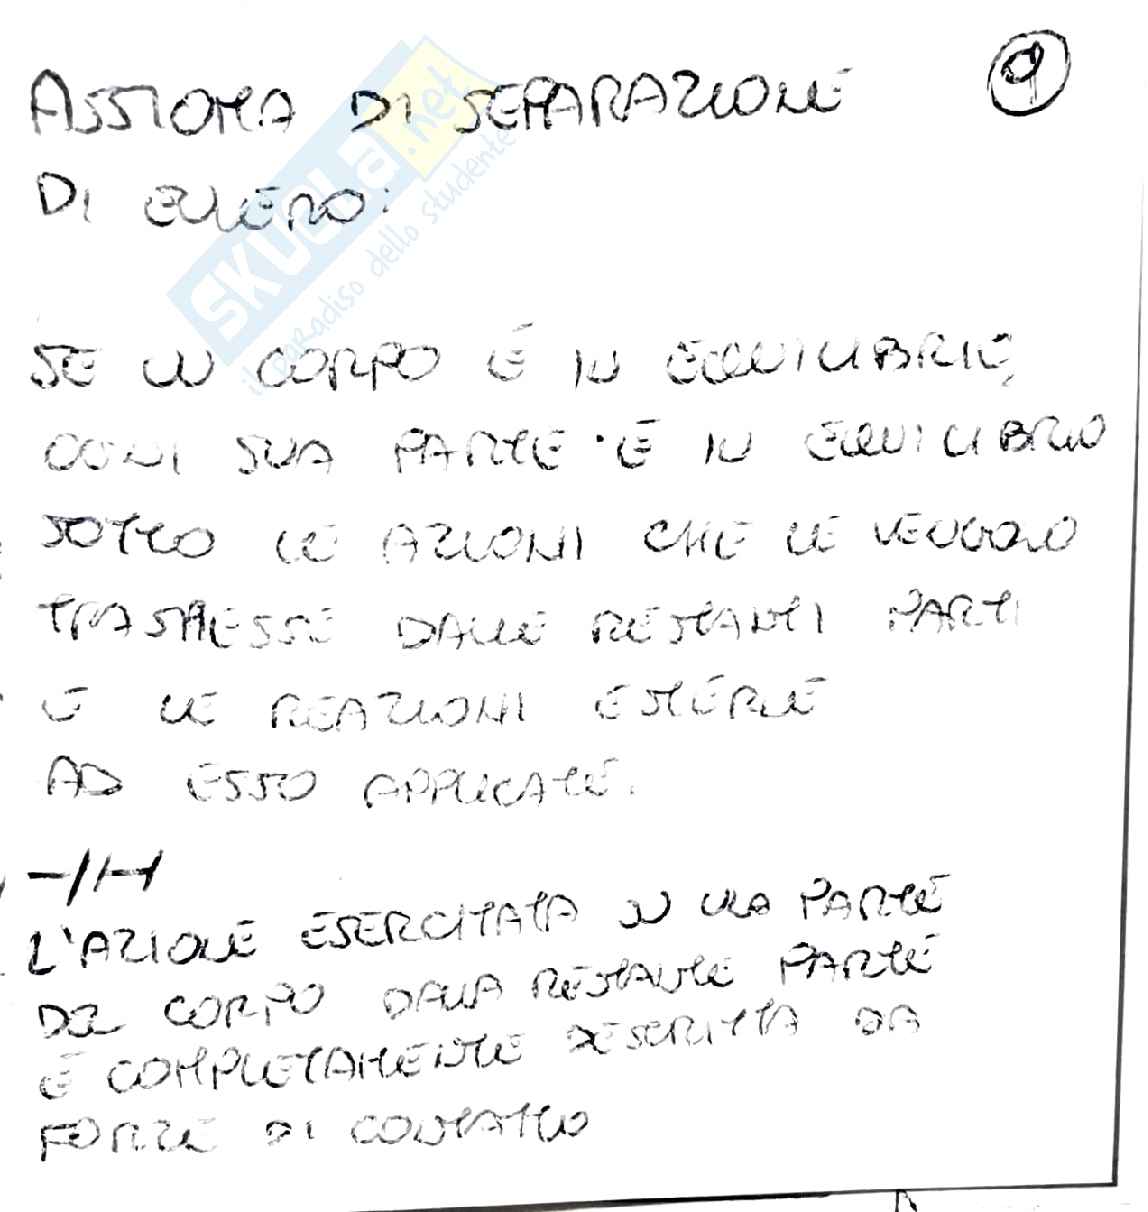 ASSIOMA DI SEPARAZIONE
9
DI EULERO:
SKUOLA.net
il paradiso dello studente
SE UN CORPO È IN EQUILIBRIO,
OGNI SUA PARTE È IN EQUILIBRIO
SOTTO LE AZIONI CHE LE VENGONO
TRASMESSE DALLE RESTANTI PARTI
E LE REAZIONI ESTERNE
AD ESSO APPLICATE.
L'AZIONE ESERCITATA SU UNA PARTE
DEL CORPO DALLA RESTANTE PARTE
È COMPLETAMENTE DESCRITTA DA
FORZE DI CONTATTO